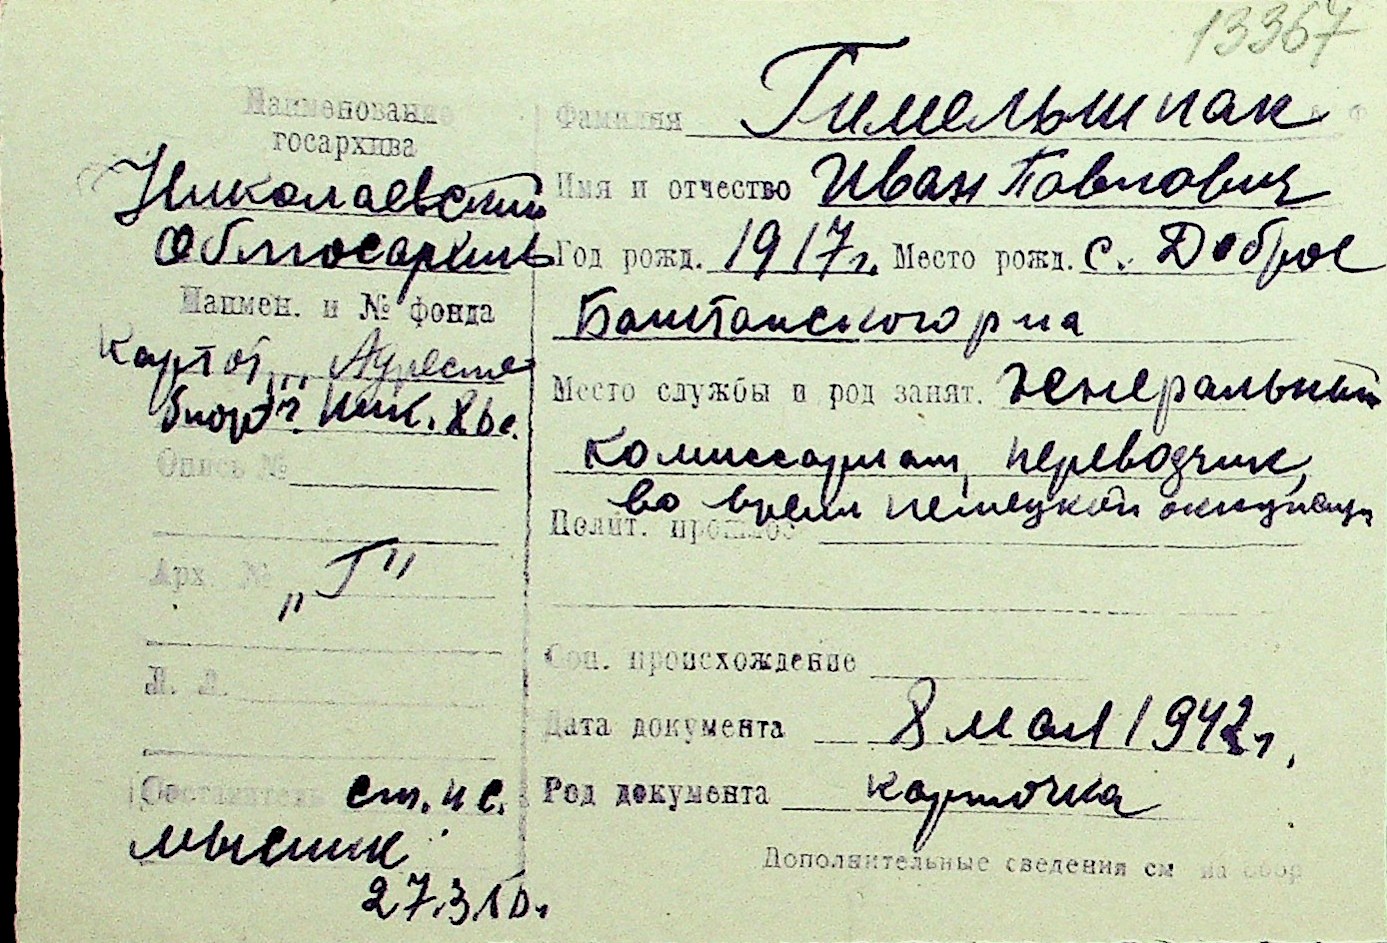 13367
Наименование
госархива
Николаевский
Облгосархив
Наимен. и № фонда
Картот. Адресн.
бюро г. Ник.
Опись №
Арх. №
„Г"
Л. Л.
Составитель ст. н с.
Мысник
27.3.
Фамилия Гимельшпак
Имя и отчество Иван Павлович
Год рожд. 1917г. Место рожд. с. Доброе
Баштанского р-на
Место службы и род занят. генеральный
комиссариат, переводчик,
во время немецкой оккупации
Полит. прошлое
Соц. происхождение
Дата документа 8 мая 1942г.
Род документа карточка
Дополнительные сведения см на обор